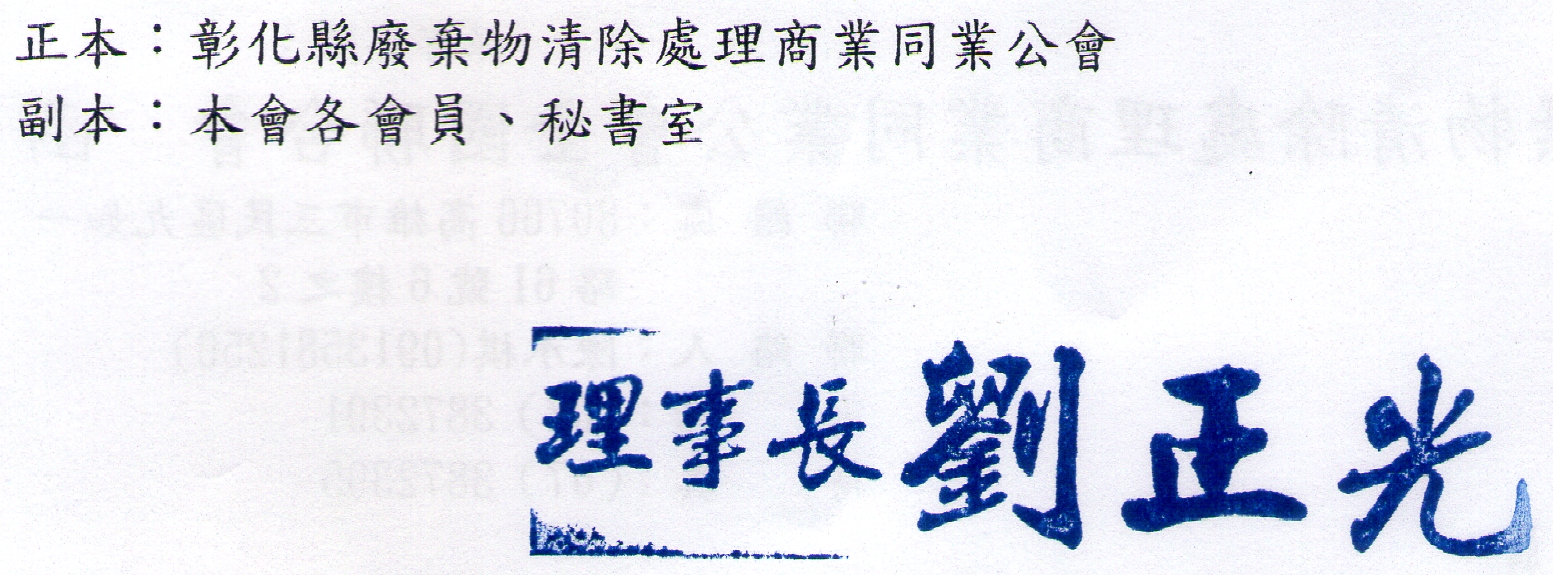 正本：彰化縣廢棄物清除處理商業同業公會
副本：本會各會員、秘書室
理事長劉正光